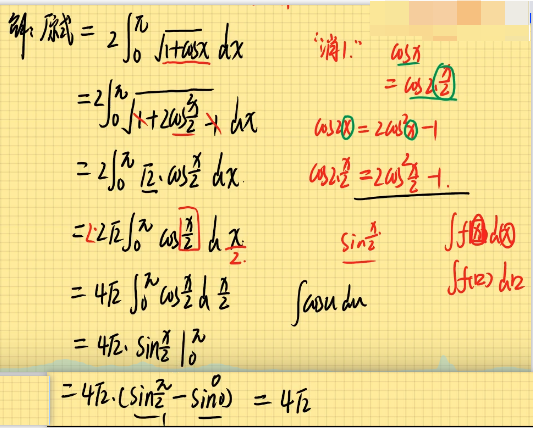 解: 原式 = 2∫₀^π √(1+cosx) dx
= 2∫₀^π √(1+2cos²x/2 -1) dx
= 2∫₀^π √2·cos x/2 dx.
= 2·2√2∫₀^π cos x/2 d x/2.
= 4√2 ∫₀^π cos x/2 d x/2
= 4√2· sin x/2 |₀^π
= 4√2·(sin π/2 - sin0) = 4√2
1
0
"消1."
cosx
= cos2·x/2
cos2x = 2cos²x -1
cos2·x/2 = 2cos²x/2 -1.
sin x/2
∫f(x)d(x)
∫cosu du